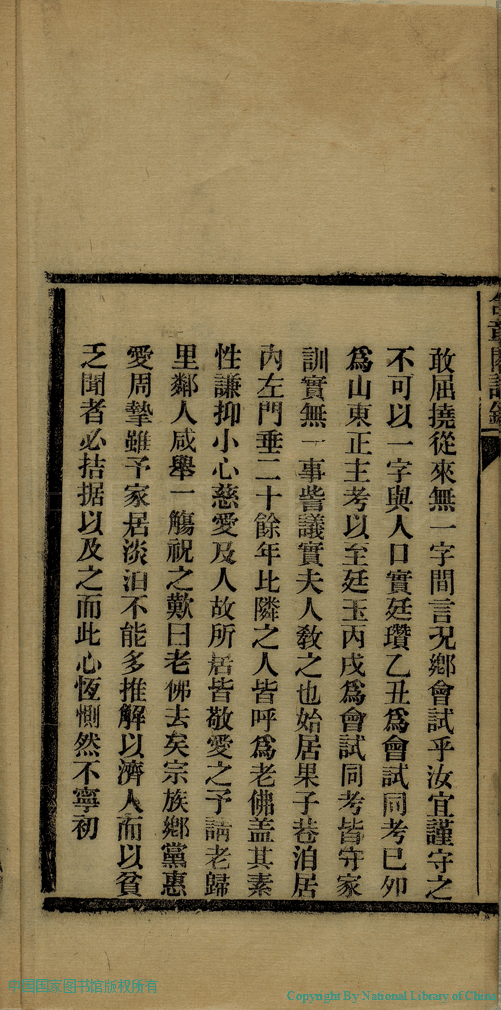 敢屈撓從來無一字間言况鄉會試乎汝宜謹守之
不可以一字與人口實廷瓚乙丑爲會試同考己卯
爲山東正主考以至廷玉丙戌爲會試同考皆守家
訓實無一事訾議實夫人敎之也始居果子巷洎居
內左門垂二十餘年比隣之人皆呼爲老佛盖其素
性謙抑小心慈愛及人故所居皆敬愛之予請老歸
里鄰人咸舉一觴祝之歎曰老佛去矣宗族鄉黨惠
愛周摯雖予家居淡泊不能多推解以濟人而以貧
乏聞者必拮据以及之而此心恆惻然不寧初
中国国家图书馆版权所有
Copyright By National Library of China